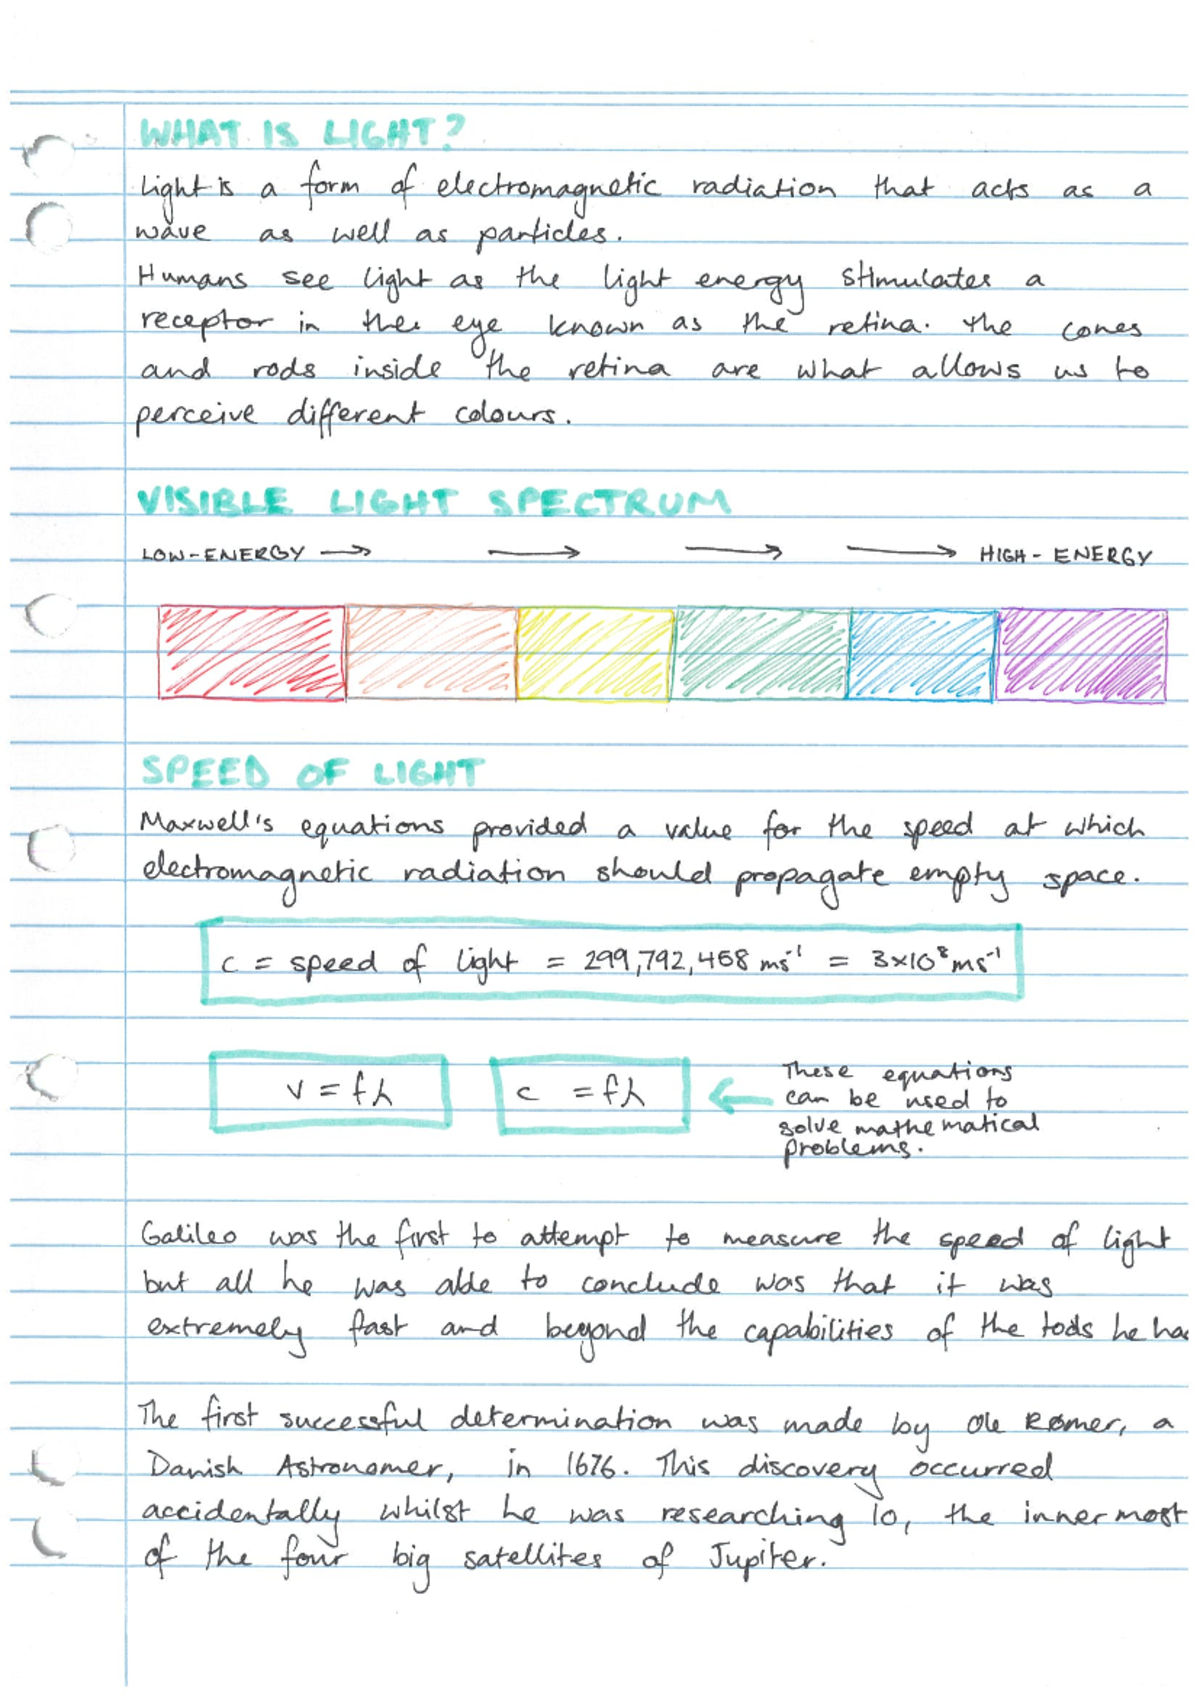 WHAT IS LIGHT?
Light is a form of electromagnetic radiation that acts as a
wave as well as particles.
Humans see light as the light energy stimulates a
receptor in the eye known as the retina. The cones
and rods inside the retina are what allows us to
perceive different colours.
VISIBLE LIGHT SPECTRUM
LOW-ENERGY → → → → HIGH-ENERGY
SPEED OF LIGHT
Maxwell's equations provided a value for the speed at which
electromagnetic radiation should propagate empty space.
c = speed of light = 299,792,458 ms⁻¹ = 3×10⁸ms⁻¹
v = fλ c = fλ ←
These equations
can be used to
solve mathematical
problems.
Galileo was the first to attempt to measure the speed of light
but all he was able to conclude was that it was
extremely fast and beyond the capabilities of the tools he ha
The first successful determination was made by Ole Rømer, a
Danish Astronomer, in 1676. This discovery occurred
accidentally whilst he was researching Io, the innermost
of the four big satellites of Jupiter.